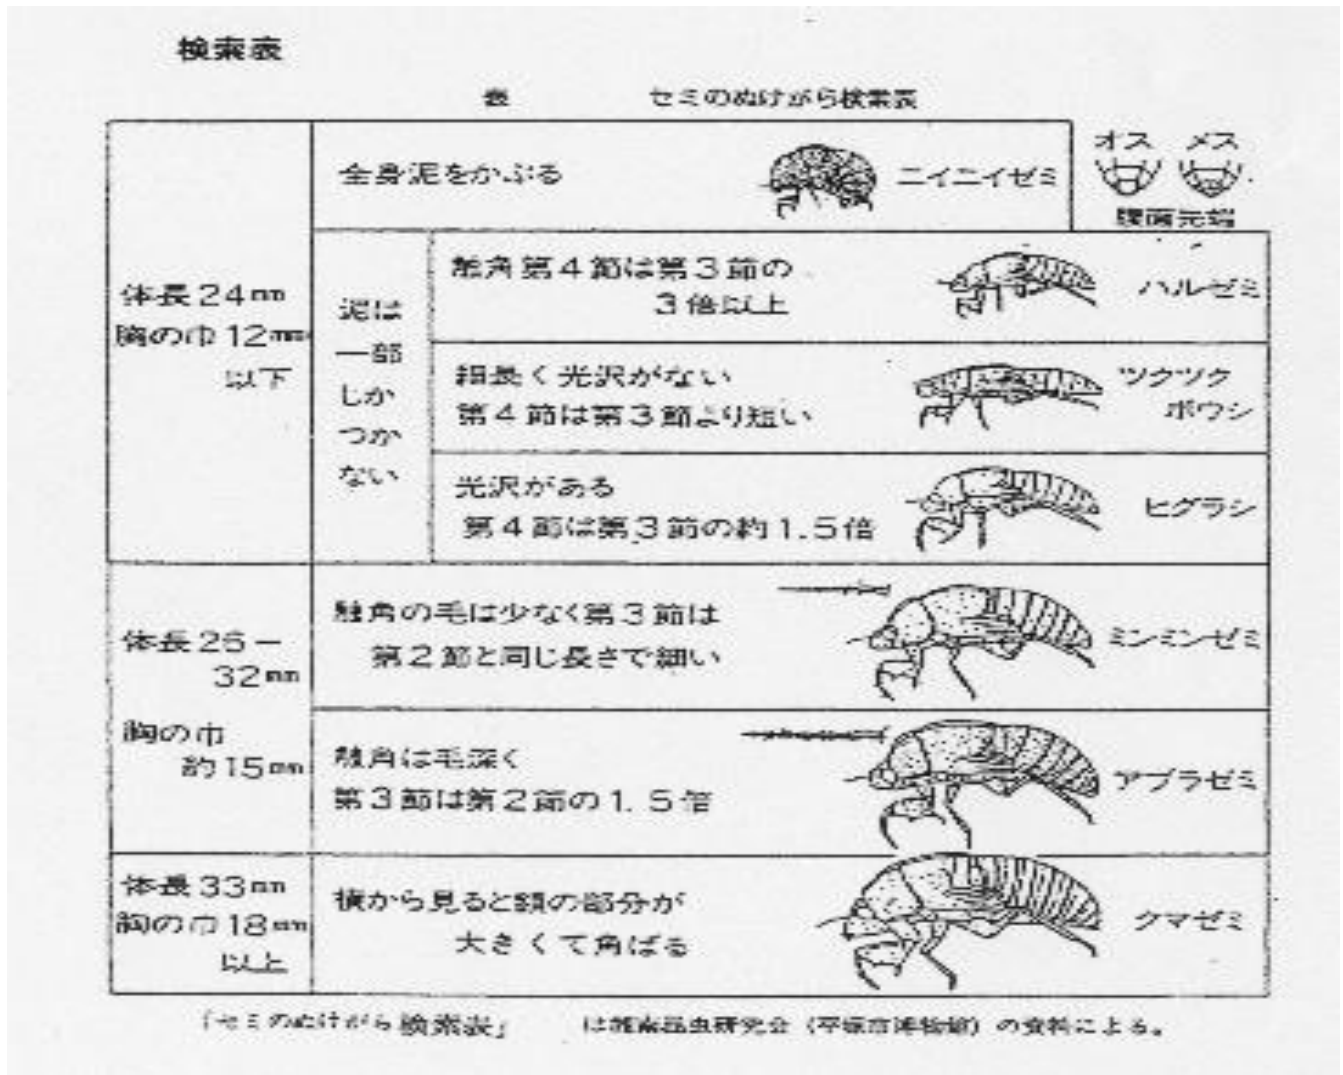 検索表
表 セミのぬけがら検索表
体長24mm
胸の巾12mm
以下
全身泥をかぶる
ニイニイゼミ
オス メス
腹面先端
泥は
一部
しか
つか
ない
触角第4節は第3節の
3倍以上
ハルゼミ
細長く光沢がない
第4節は第3節より短い
ツクツク
ボウシ
光沢がある
第4節は第3節の約1.5倍
ヒグラシ
体長26-
32mm
胸の巾
約15mm
触角の毛は少なく第3節は
第2節と同じ長さで細い
ミンミンゼミ
触角は毛深く
第3節は第2節の1.5倍
アブラゼミ
体長33mm
胸の巾18mm
以上
横から見ると額の部分が
大きくて角ばる
クマゼミ
「セミのぬけがら検索表」 は 昆虫研究会(平塚市博物館)の資料による。